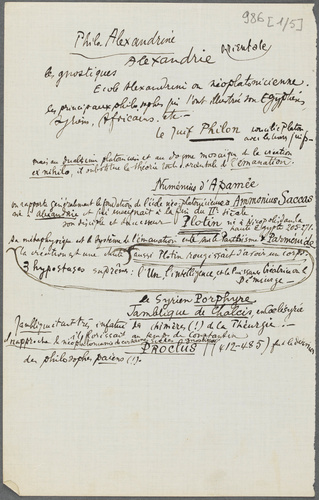 986 [1/5]
Philo. Alexandrine
Alexandrie orientale
les gnostiques
Ecole Alexandrine ou néoplatonicienne.
les principaux philosophes qui l'ont illustrée son Egyptiens,
Syriens, Africains, etc. —
le juif Philon concilie Platon
avec la
mais au dualisme platonicien et au dogme mosaïque de la création
ex nihilo, il substitue la théorie orientale de l'émanation.
Numénius d'Apamée
on rapporte généralement la fondation de l'école néoplatonicienne à Ammonius Saccas
d'Alexandrie et qui enseignait à la fin du IIe siècle
son disciple et successeur Plotin né à Nicopolis dans la
haute Egypte 205-271.
Sa métaphysique est le système de l'émanation et le Panthéisme Parménide
la création est une chute aussi Plotin rougissait d'avoir un corps.
3 hypostases suprêmes : l'Un, l'intelligence et la Puissance créatrice ou le
Démiurge —
Le Syrien Porphyre
Jamblique de Chalcis, en Coelésyrie
Jamblique était très infatué des chimères (!) de la Théurgie.
il florissait au temps de Constantin
rapproche le néoplatonisme
Proclus (412-485) fut le dernier
des philosophes païens (!).